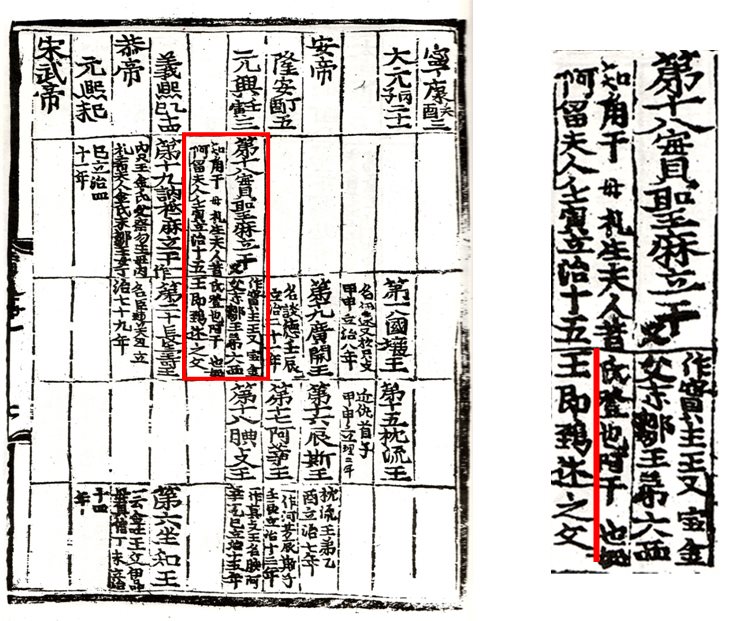 寧康癸酉三
大元丙子二十一
安帝
隆安丁酉五
元興壬寅三
義熙乙巳
恭帝
元熙
宋武帝
第十八實聖麻立干
作實主王又宝金
父未鄒王弟大西
知角干 母礼生夫人昔氏登也阿干
阿留夫人壬寅立治十五
王即鵄述之父
第十九訥祗麻立干
内只王金氏父奈勿王母内
礼希夫人金氏未鄒王女
治四十一年
第八國壤王
甲申立治八年
第十九廣開王
名談德壬辰
立治二十一年
第二十長壽王
治七十九年
第十五枕流王
近仇首子
甲申立理二年
第十六辰斯王
枕流王弟乙
酉立治七年
第十七阿莘王
作阿芳辰斯子
壬辰立治十三年
第十八腆支王
作真支王名映阿
莘子乙巳立治十五年
第六坐知王
一云金
十四年
第十八實聖麻立干
作實主王又宝金
父未鄒王弟大西
知角干 母礼生夫人昔氏登也阿干
阿留夫人壬寅立治十五
王即鵄述之父